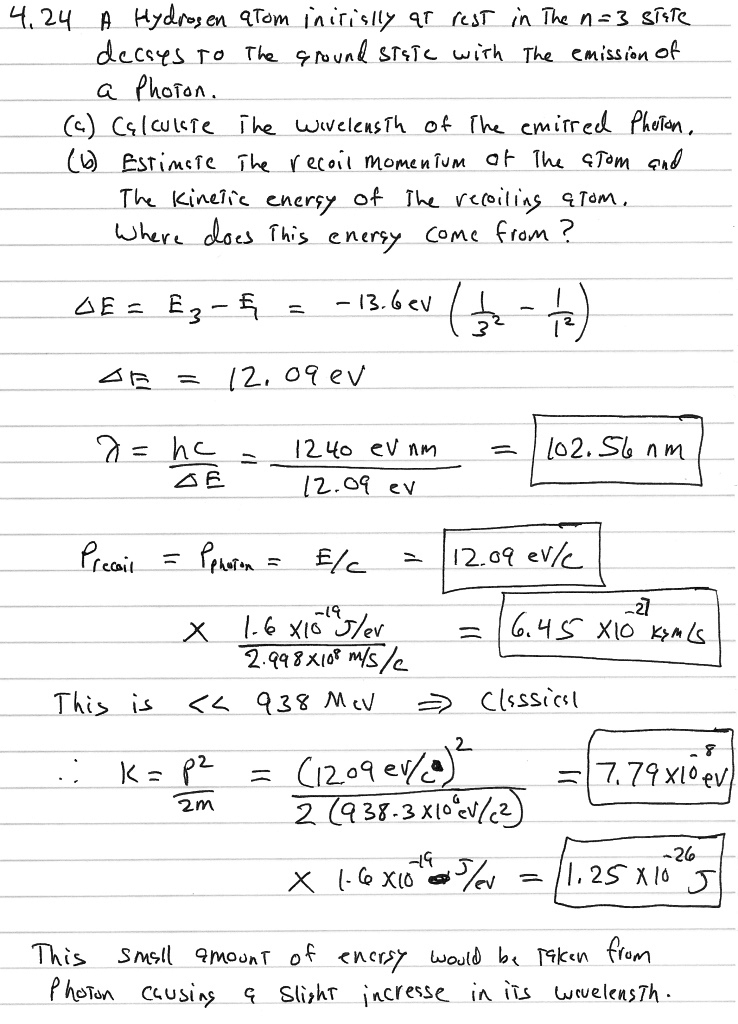 4.24 A Hydrogen atom initially at rest in the n=3 state
decays to the ground state with the emission of
a Photon.
(a) Calculate the wavelength of the emitted Photon.
(b) Estimate the recoil momentum of the atom and
the kinetic energy of the recoiling atom.
Where does this energy come from?
ΔE = E₃ - E₁ = -13.6 eV (1/3² - 1/1²)
ΔE = 12.09 eV
λ = hc/ΔE = 1240 eV nm / 12.09 eV = 102.56 nm
P recoil = P photon = E/c = 12.09 eV/c
× 1.6 ×10⁻¹⁹ J/eV / 2.998×10⁸ m/s/c = 6.45 ×10⁻²⁷ kgm/s
This is << 938 MeV ⇒ Classical
∴ K = P²/2m = (12.09 eV/c)² / 2(938.3 ×10⁶ eV/c²) = 7.79 ×10⁻⁸ eV
× 1.6 ×10⁻¹⁹ J/eV = 1.25 ×10⁻²⁶ J
This small amount of energy would be taken from
Photon causing a slight increase in its wavelength.